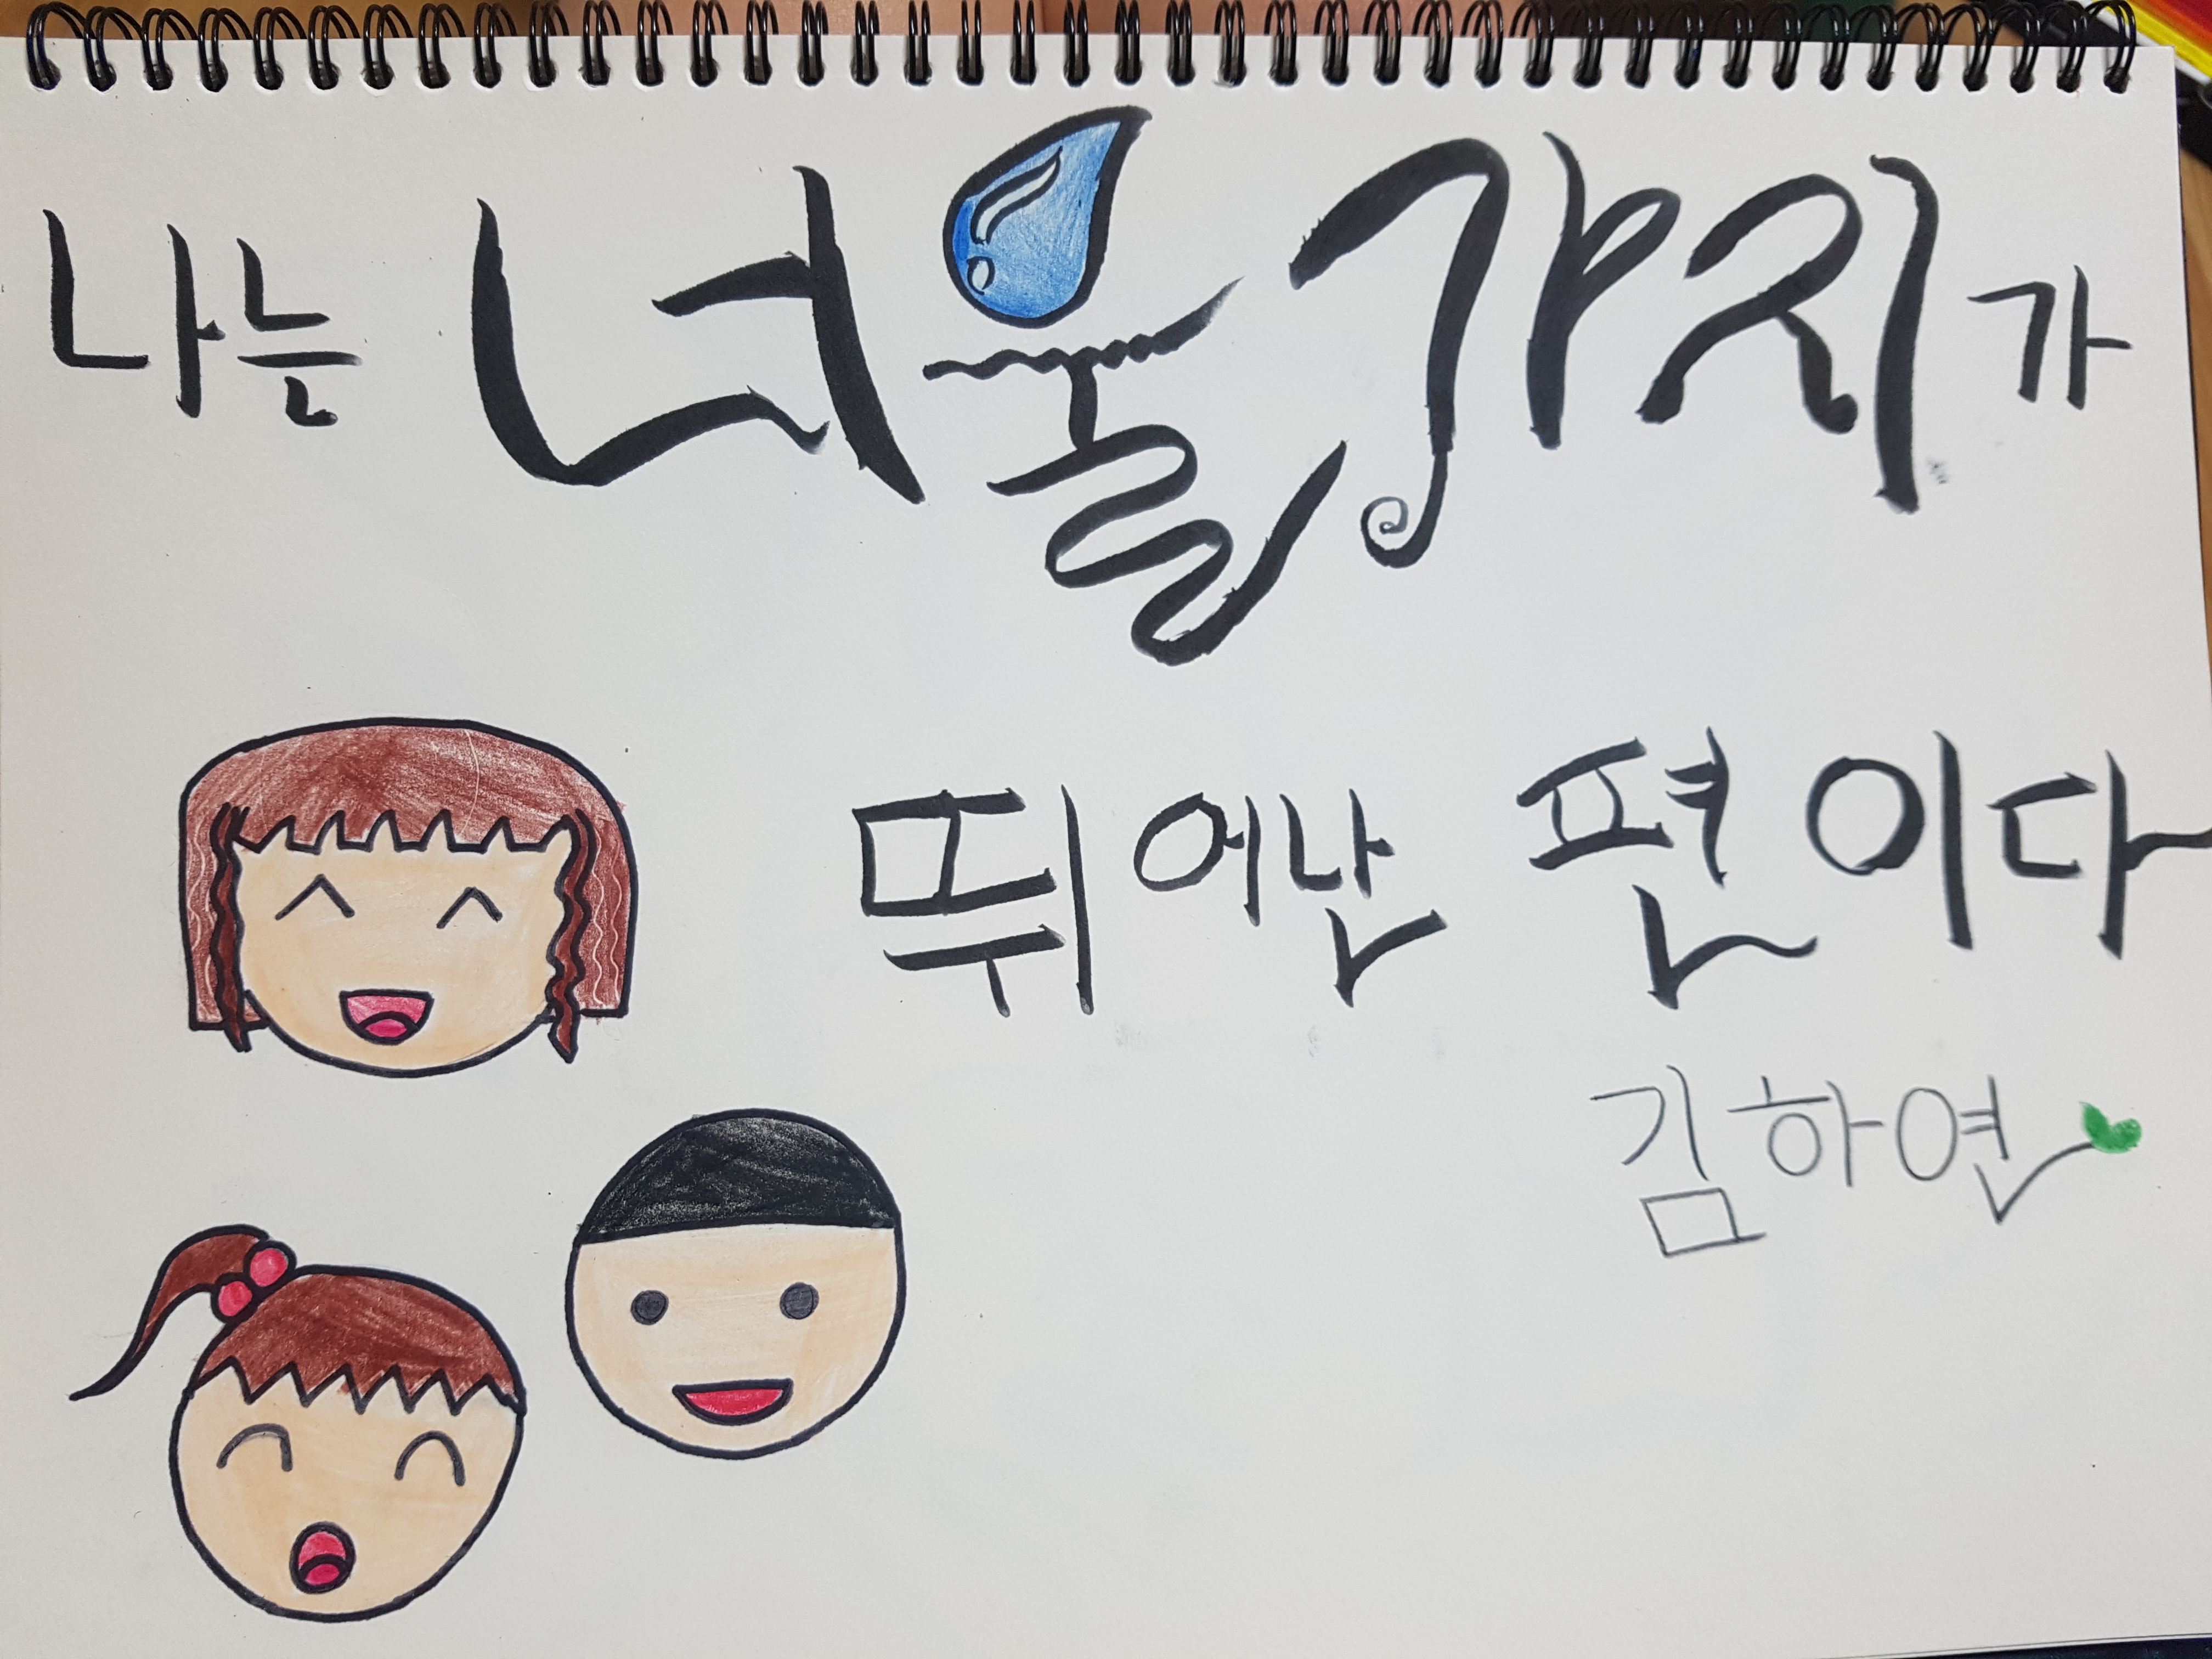 나는 너울가지가
뛰어난 편이다
김하연